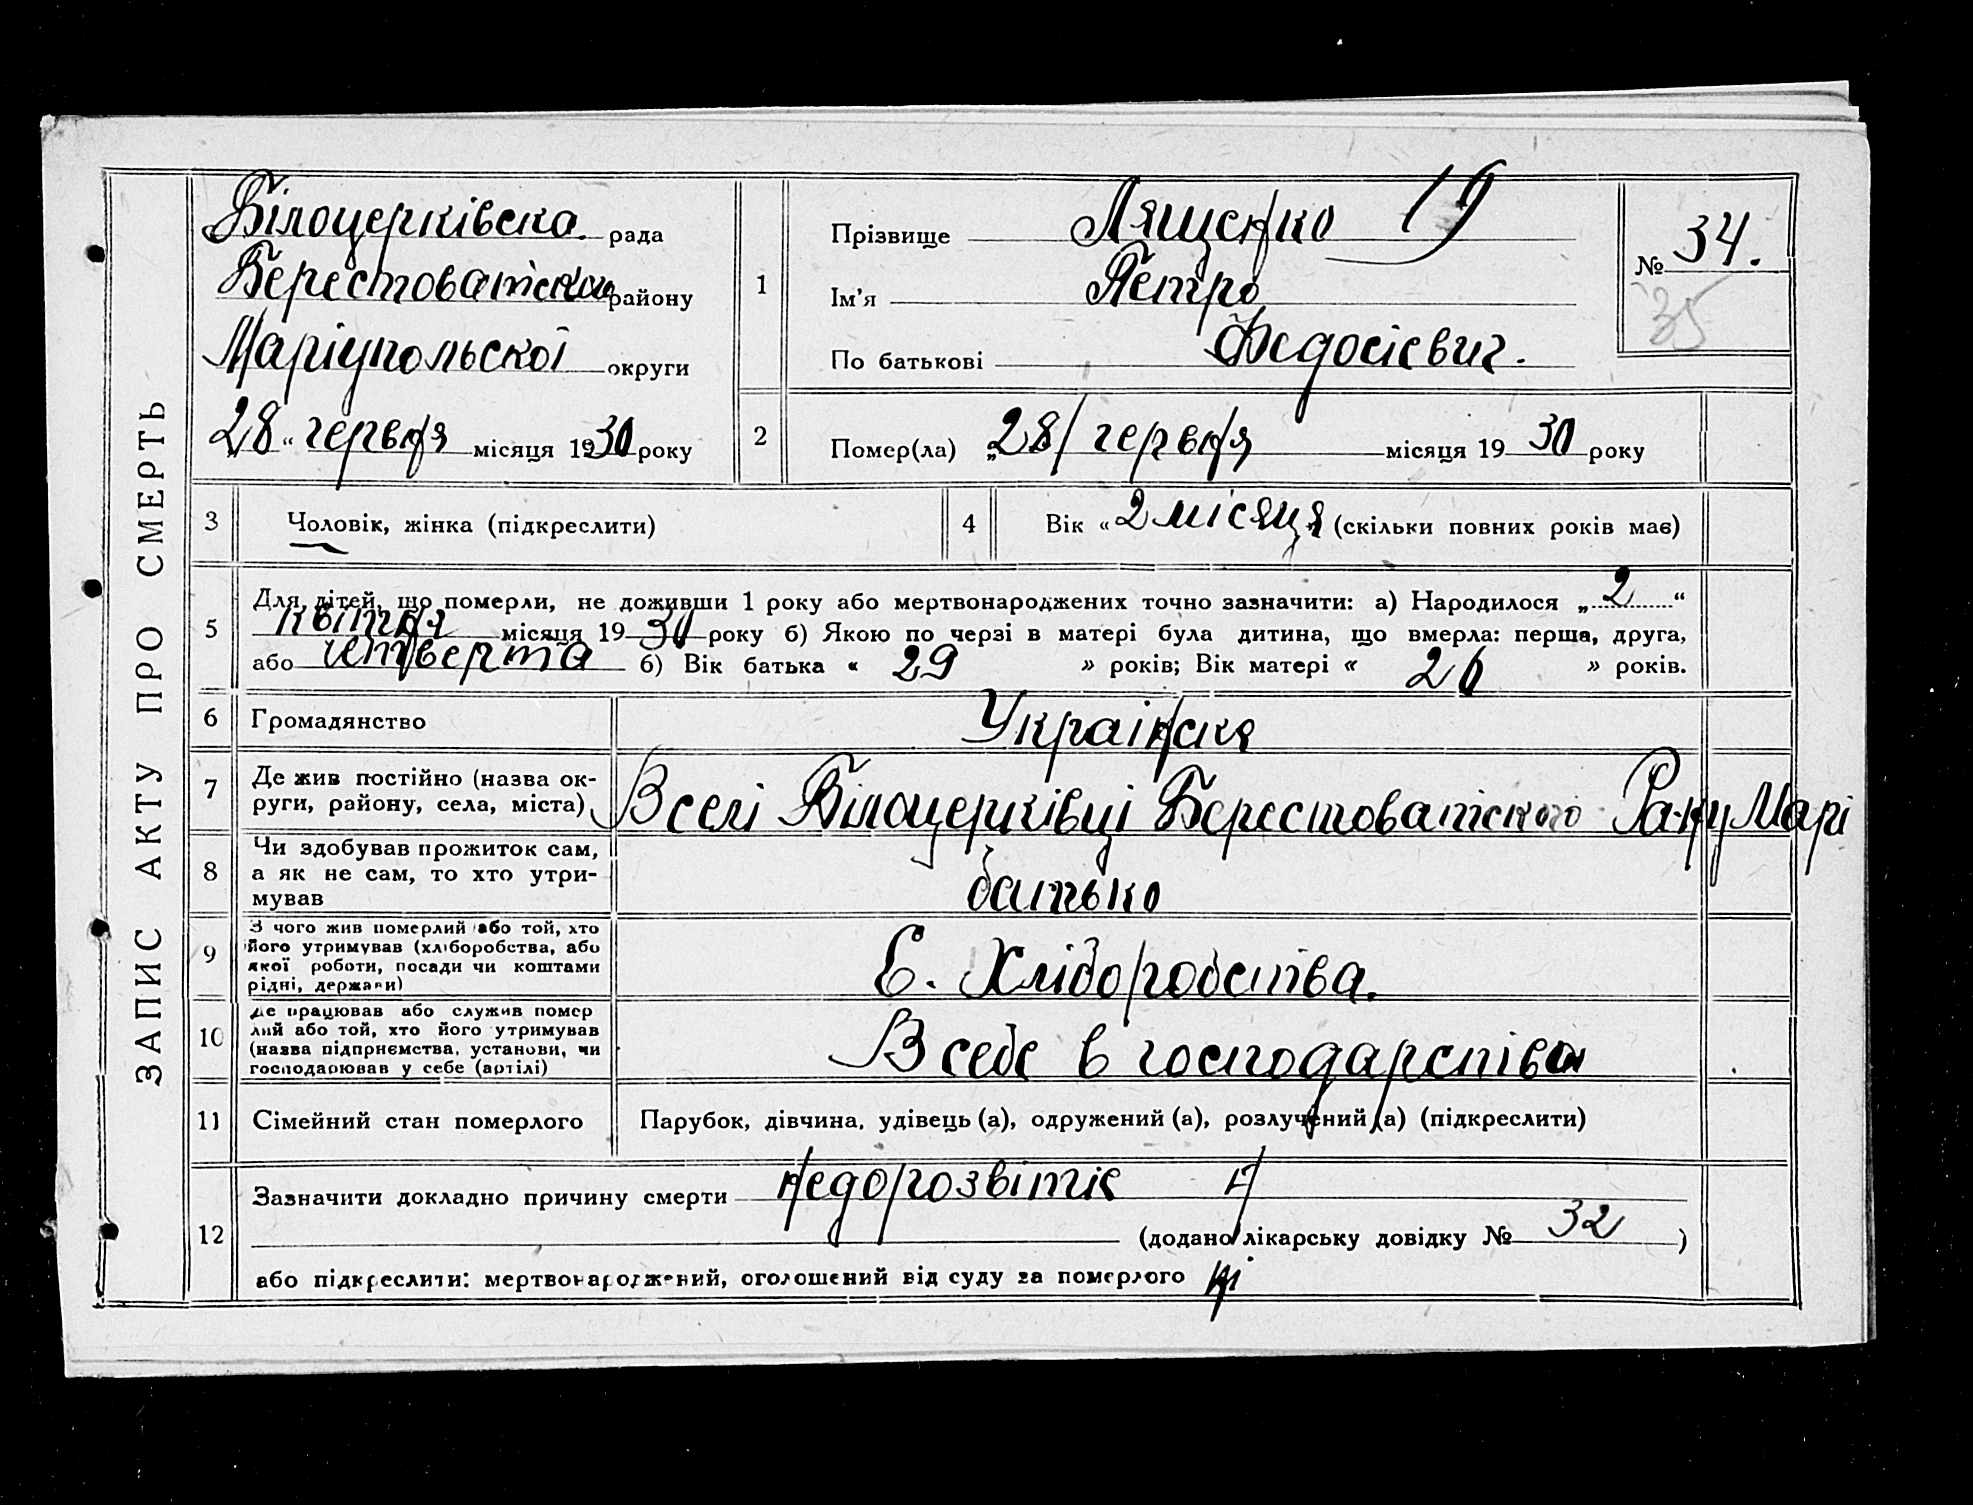 ЗАПИС АКТУ ПРО СМЕРТЬ
Білоцерківска рада
Берестоватски району
Маріупольскої округи
28 „ червня місяця 1930 року
1
Прізвище Лященко 19
Ім’я Петро
По батькові Федосієвич.
№ 34.
35
2
Помер(ла) „28 червня місяця 1930 року
3
Чоловік, жінка (підкреслити)
4
Вік «2 місяця (скільки повних років має)
5
Для дітей, що померли, не доживши 1 року або мертвонароджених точно зазначити: а) Народилося „2“
квітня місяця 1930 року б) Якою по черзі в матері була дитина, що вмерла: перша, друга,
або четверта б) Вік батька « 29 » років; Вік матері « 26 » років.
6
Громадянство
Українска
7
Де жив постійно (назва ок-
руги, району, села, міста)
В селі Білоцерківці Берестоватского Ра-ну Марі
8
Чи здобував прожиток сам,
а як не сам, то хто утри-
мував
батько
9
З чого жив померлий або той, хто
його утримував (хліборобства, або
якої роботи, посади чи коштами
рідні, держави)
Є. Хліборобства.
10
Де працював або служив помер
лий або той, хто його утримував
(назва підприємства, установи, чи
господарював у себе (артілі)
В себе в господарства
11
Сімейний стан померлого
Парубок, дівчина, удівець (а), одружений (а), розлучений (а) (підкреслити)
12
Зазначити докладно причину смерти недорозвітіє
(додано лікарську довідку № 32 )
або підкреслити: мертвонароджений, оголошений від суду за померлого ні